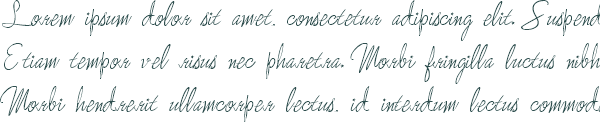 Lorem ipsum dolor sit amet. consectetur adipiscing elit. Suspend
Etiam tempor vel risus nec pharetra. Morbi fringilla luctus nibh
Morbi hendrerit ullamcorper lectus. id interdum lectus commod